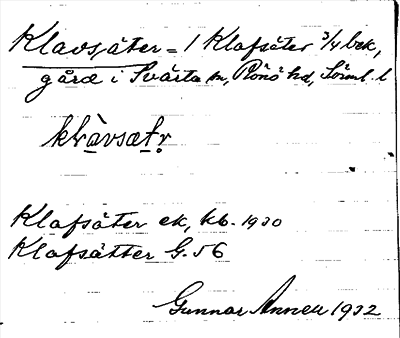 Klavsäter = 1 Klafsäter 3/4 bek,
gård i Svärta sn, Rönö hd, Söml. l
klàvsætr
Klafsäter ek, kb. 1930
Klafsätter G. 56
Gunnar Annell 1932